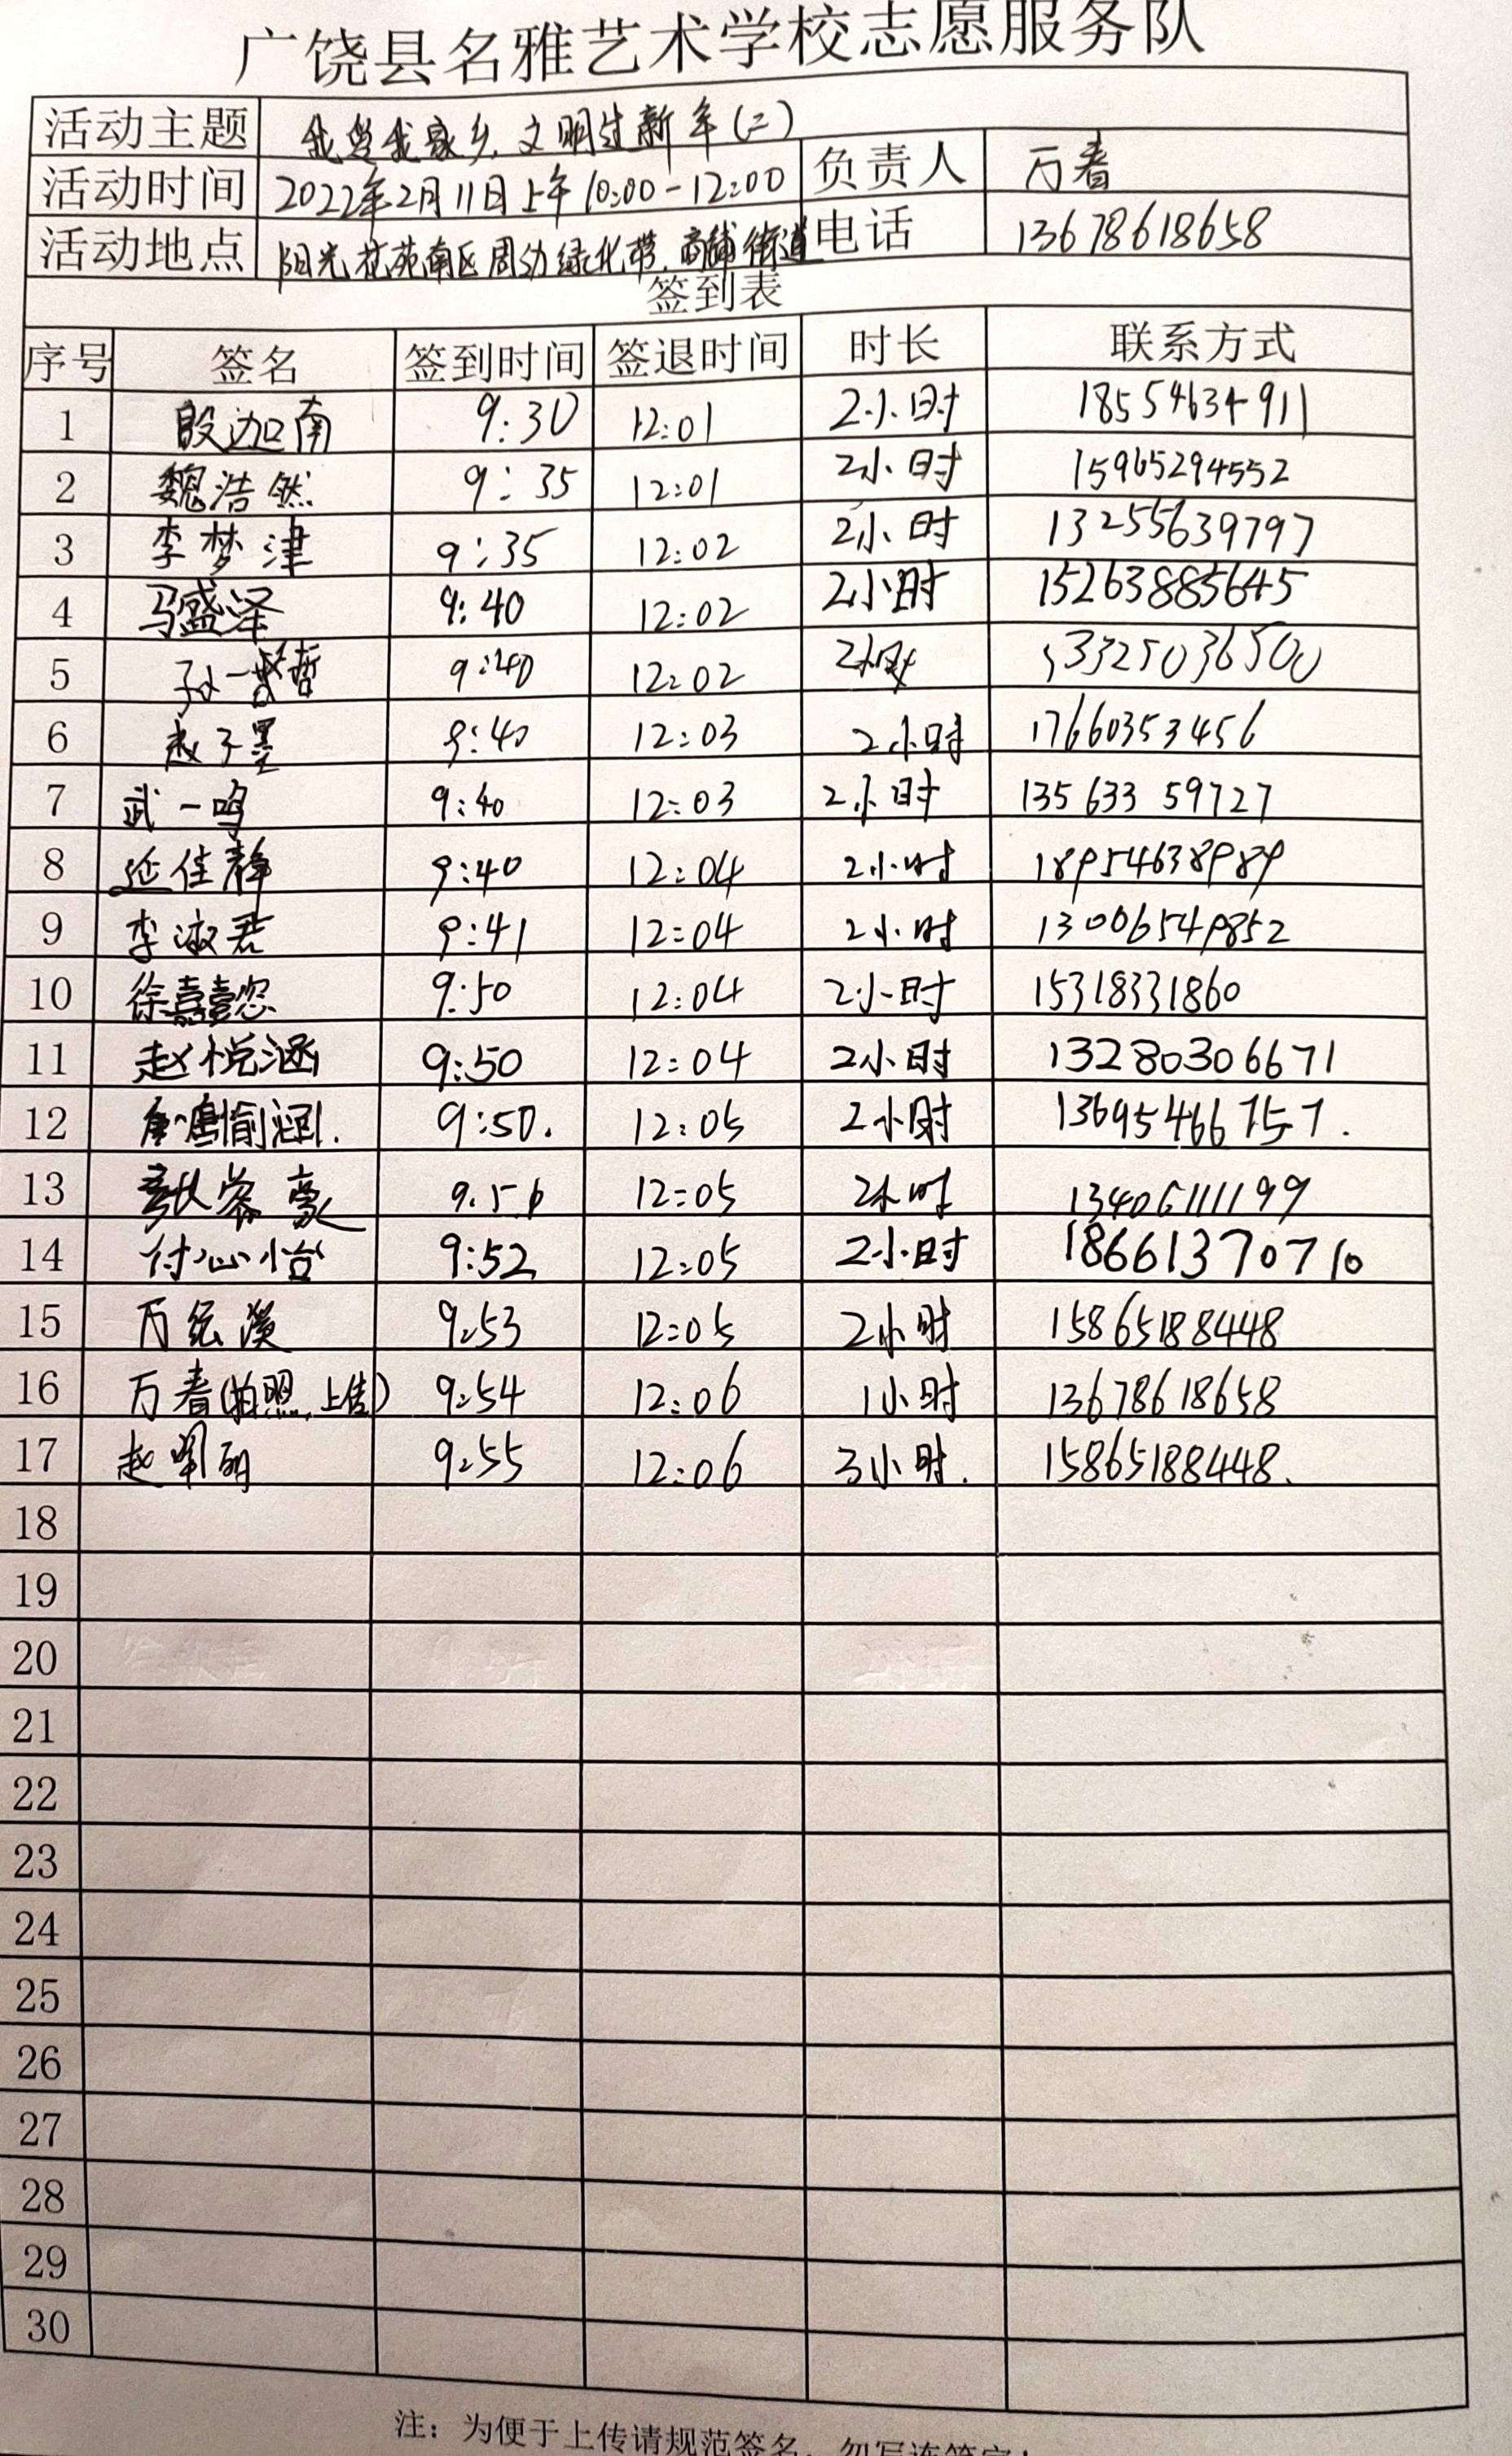 广饶县名雅艺术学校志愿服务队
活动主题 我爱我家乡,文明过新年(二)
活动时间 2022年2月11日上午10:00-12:00 负责人 万春
活动地点 阳光花苑南区周边绿化带,商铺街道 电话 13678618658
签到表
序号 签名 签到时间 签退时间 时长 联系方式
1 殷迦南 9:30 12:01 2小时 18554634911
2 魏浩然 9:35 12:01 2小时 15965294552
3 李梦津 9:35 12:02 2小时 13255639797
4 马盛泽 9:40 12:02 2小时 15263885645
5 孙一哲 9:40 12:02 2小时 13325036500
6 赵子墨 9:40 12:03 2小时 17660353456
7 武一鸣 9:40 12:03 2小时 13563359727
8 延佳静 9:40 12:04 2小时 18954638989
9 李淑君 9:41 12:04 2小时 13006549852
10 徐嘉忆 9:50 12:04 2小时 15318331860
11 赵悦涵 9:50 12:04 2小时 13280306671
12 9:50. 12:05 2小时 13695466757.
13 12:05 2小时 13406111199
14 付心怡 9:52 12:05 2小时 18661370710
15 万纭溪 9:53 12:05 2小时 15865188448
16 万春(拍照,上传) 9:54 12:06 1小时 13678618658
17 赵 9:55 12:06 3小时. 15865188448.
18
19
20
21
22
23
24
25
26
27
28
29
30
注：为便于上传请规范签名，勿写连笔字！